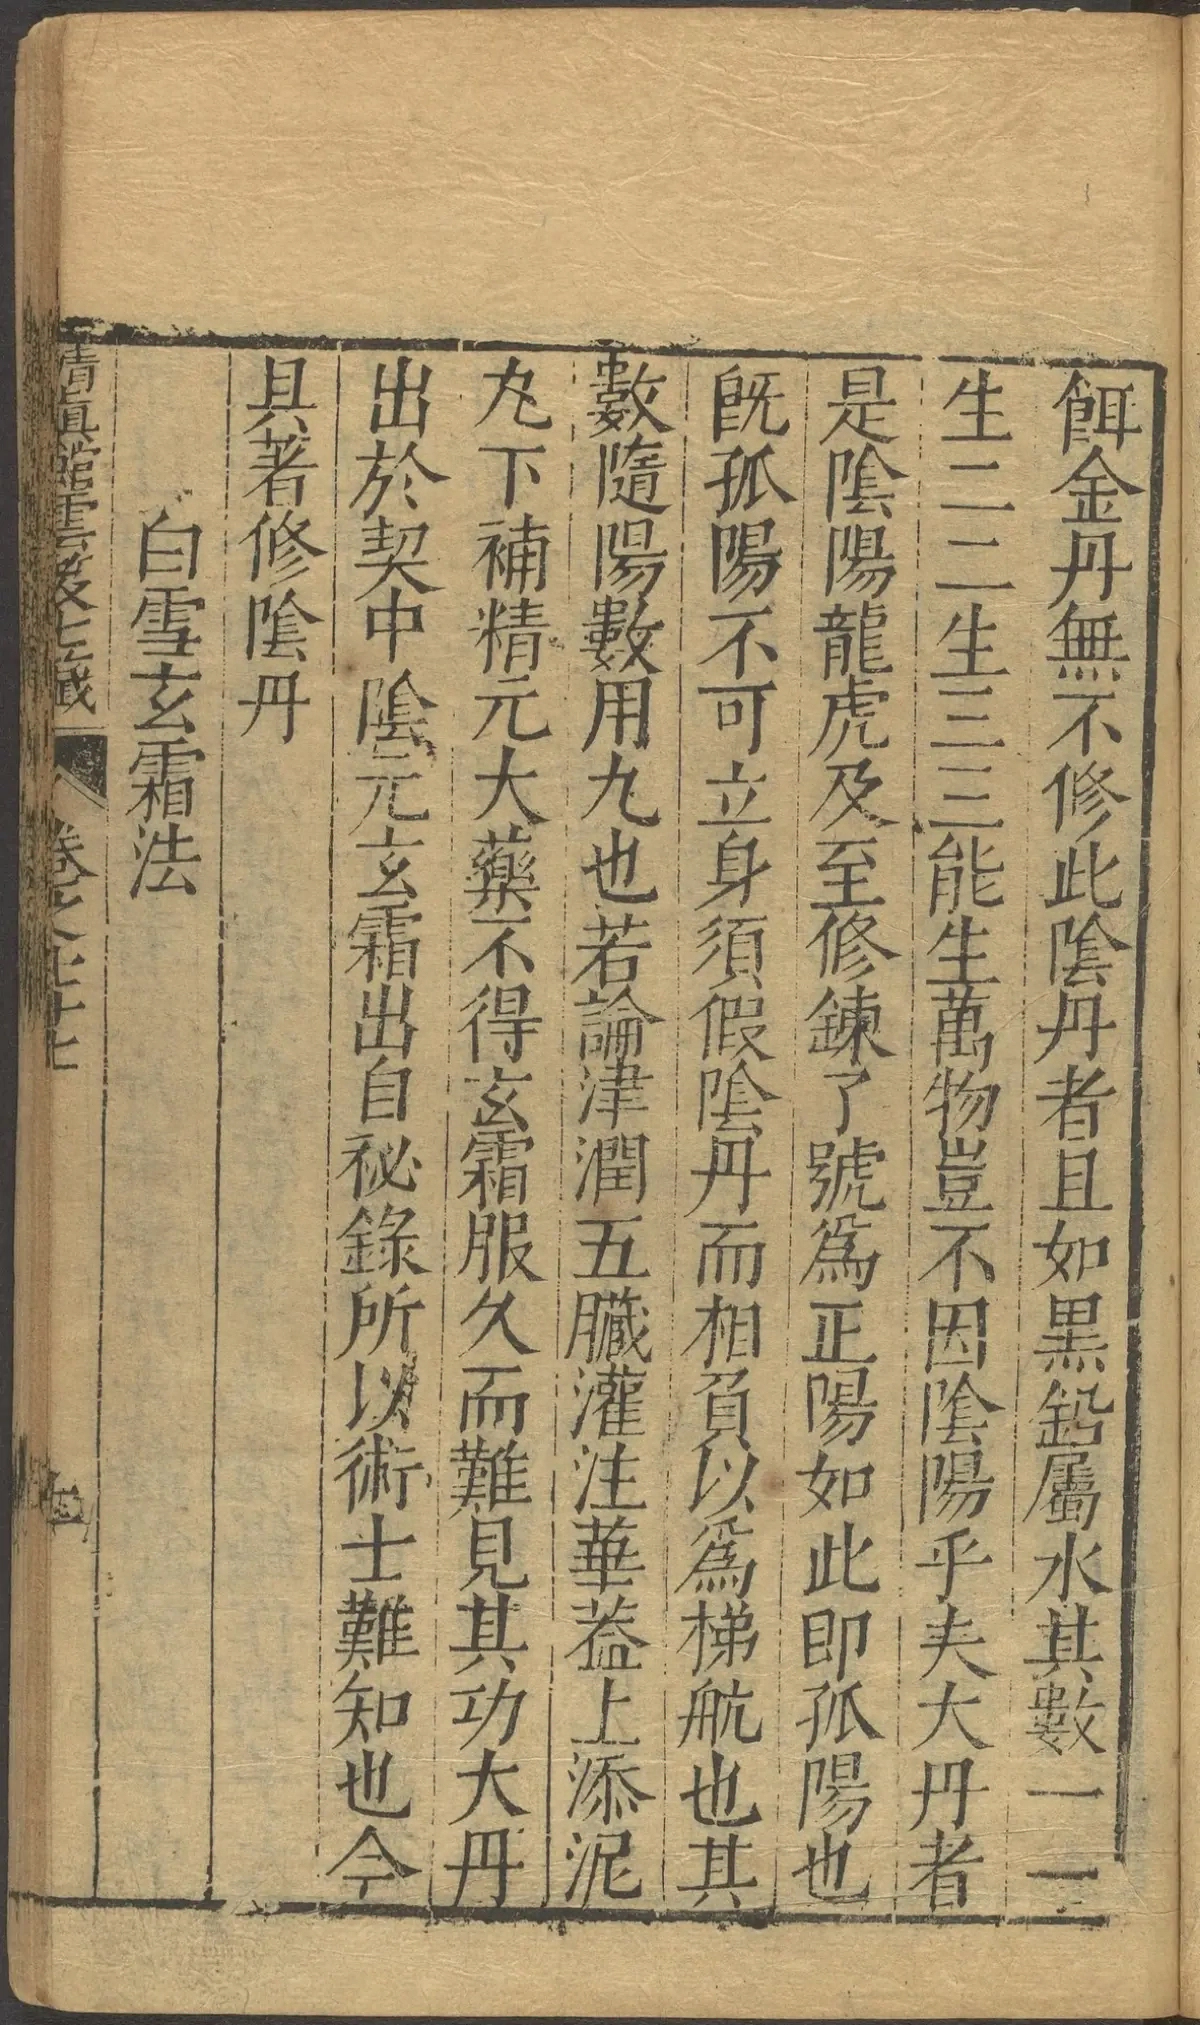 餌金丹無不修此陰丹者且如黒鉛屬水其數一一
生二二生三三能生萬物豈不因陰陽乎夫大丹者
是陰陽龍虎及至修鍊了號爲正陽如此即孤陽也
既孤陽不可立身須假陰丹而相負以爲梯航也其
數隨陽數用九也若論津潤五臟灌注華葢上添泥
丸下補精元大藥不得玄霜服久而難見其功大丹
出於契中陰元玄霜出自祕錄所以術士難知也今
具著修陰丹
白雪玄霜法
清真館雲笈七籤 卷之七十七 四